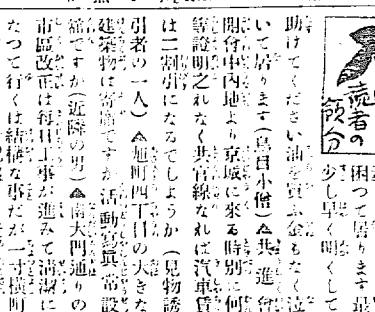 読者の
領分
困つて居ります最
少し早く明くして
助けてください油を買ふ金もなく泣
いて居ります(鳥目小僧)▲共進会
開會中内地より京城に來る時別に何
等證明之れなく共官線なれば汽車賃
は二割引になるでしようか(見物誘
引者の一人)▲旭町四丁目の大きな
建築物は寄席ですか活動寫眞常設
舘ですか(近隣の男)▲南大門通りの
市區改正は毎日工事が進みて淸潔に
なつて行くは結構な事だが一寸横町